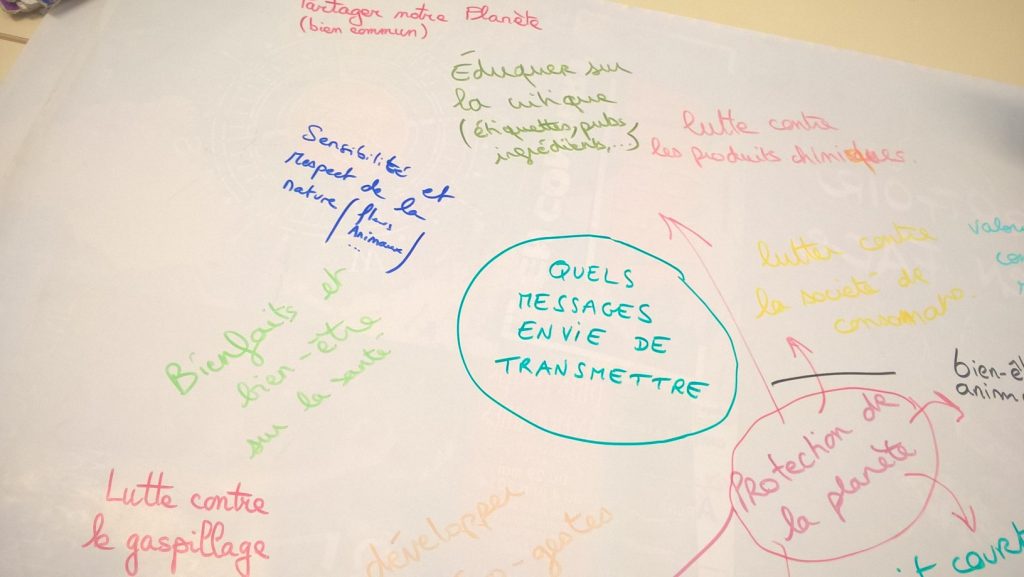 Partager notre Planète
(bien commun)
Éduquer sur
la critique
(étiquettes, pubs,
ingrédients,...)
lutte contre
les produits chimiques.
Sensibilité et
respect de la
nature (fleurs
Animaux
...)
QUELS
MESSAGES
ENVIE DE
TRANSMETTRE
lutter contre
la société de
consomat°
valo
con
bien-êt
anima
Bienfaits et
bien-être
sur la santé
Protection de
la planète
Lutte contre
le gaspillage
développer
o-gestes
it court